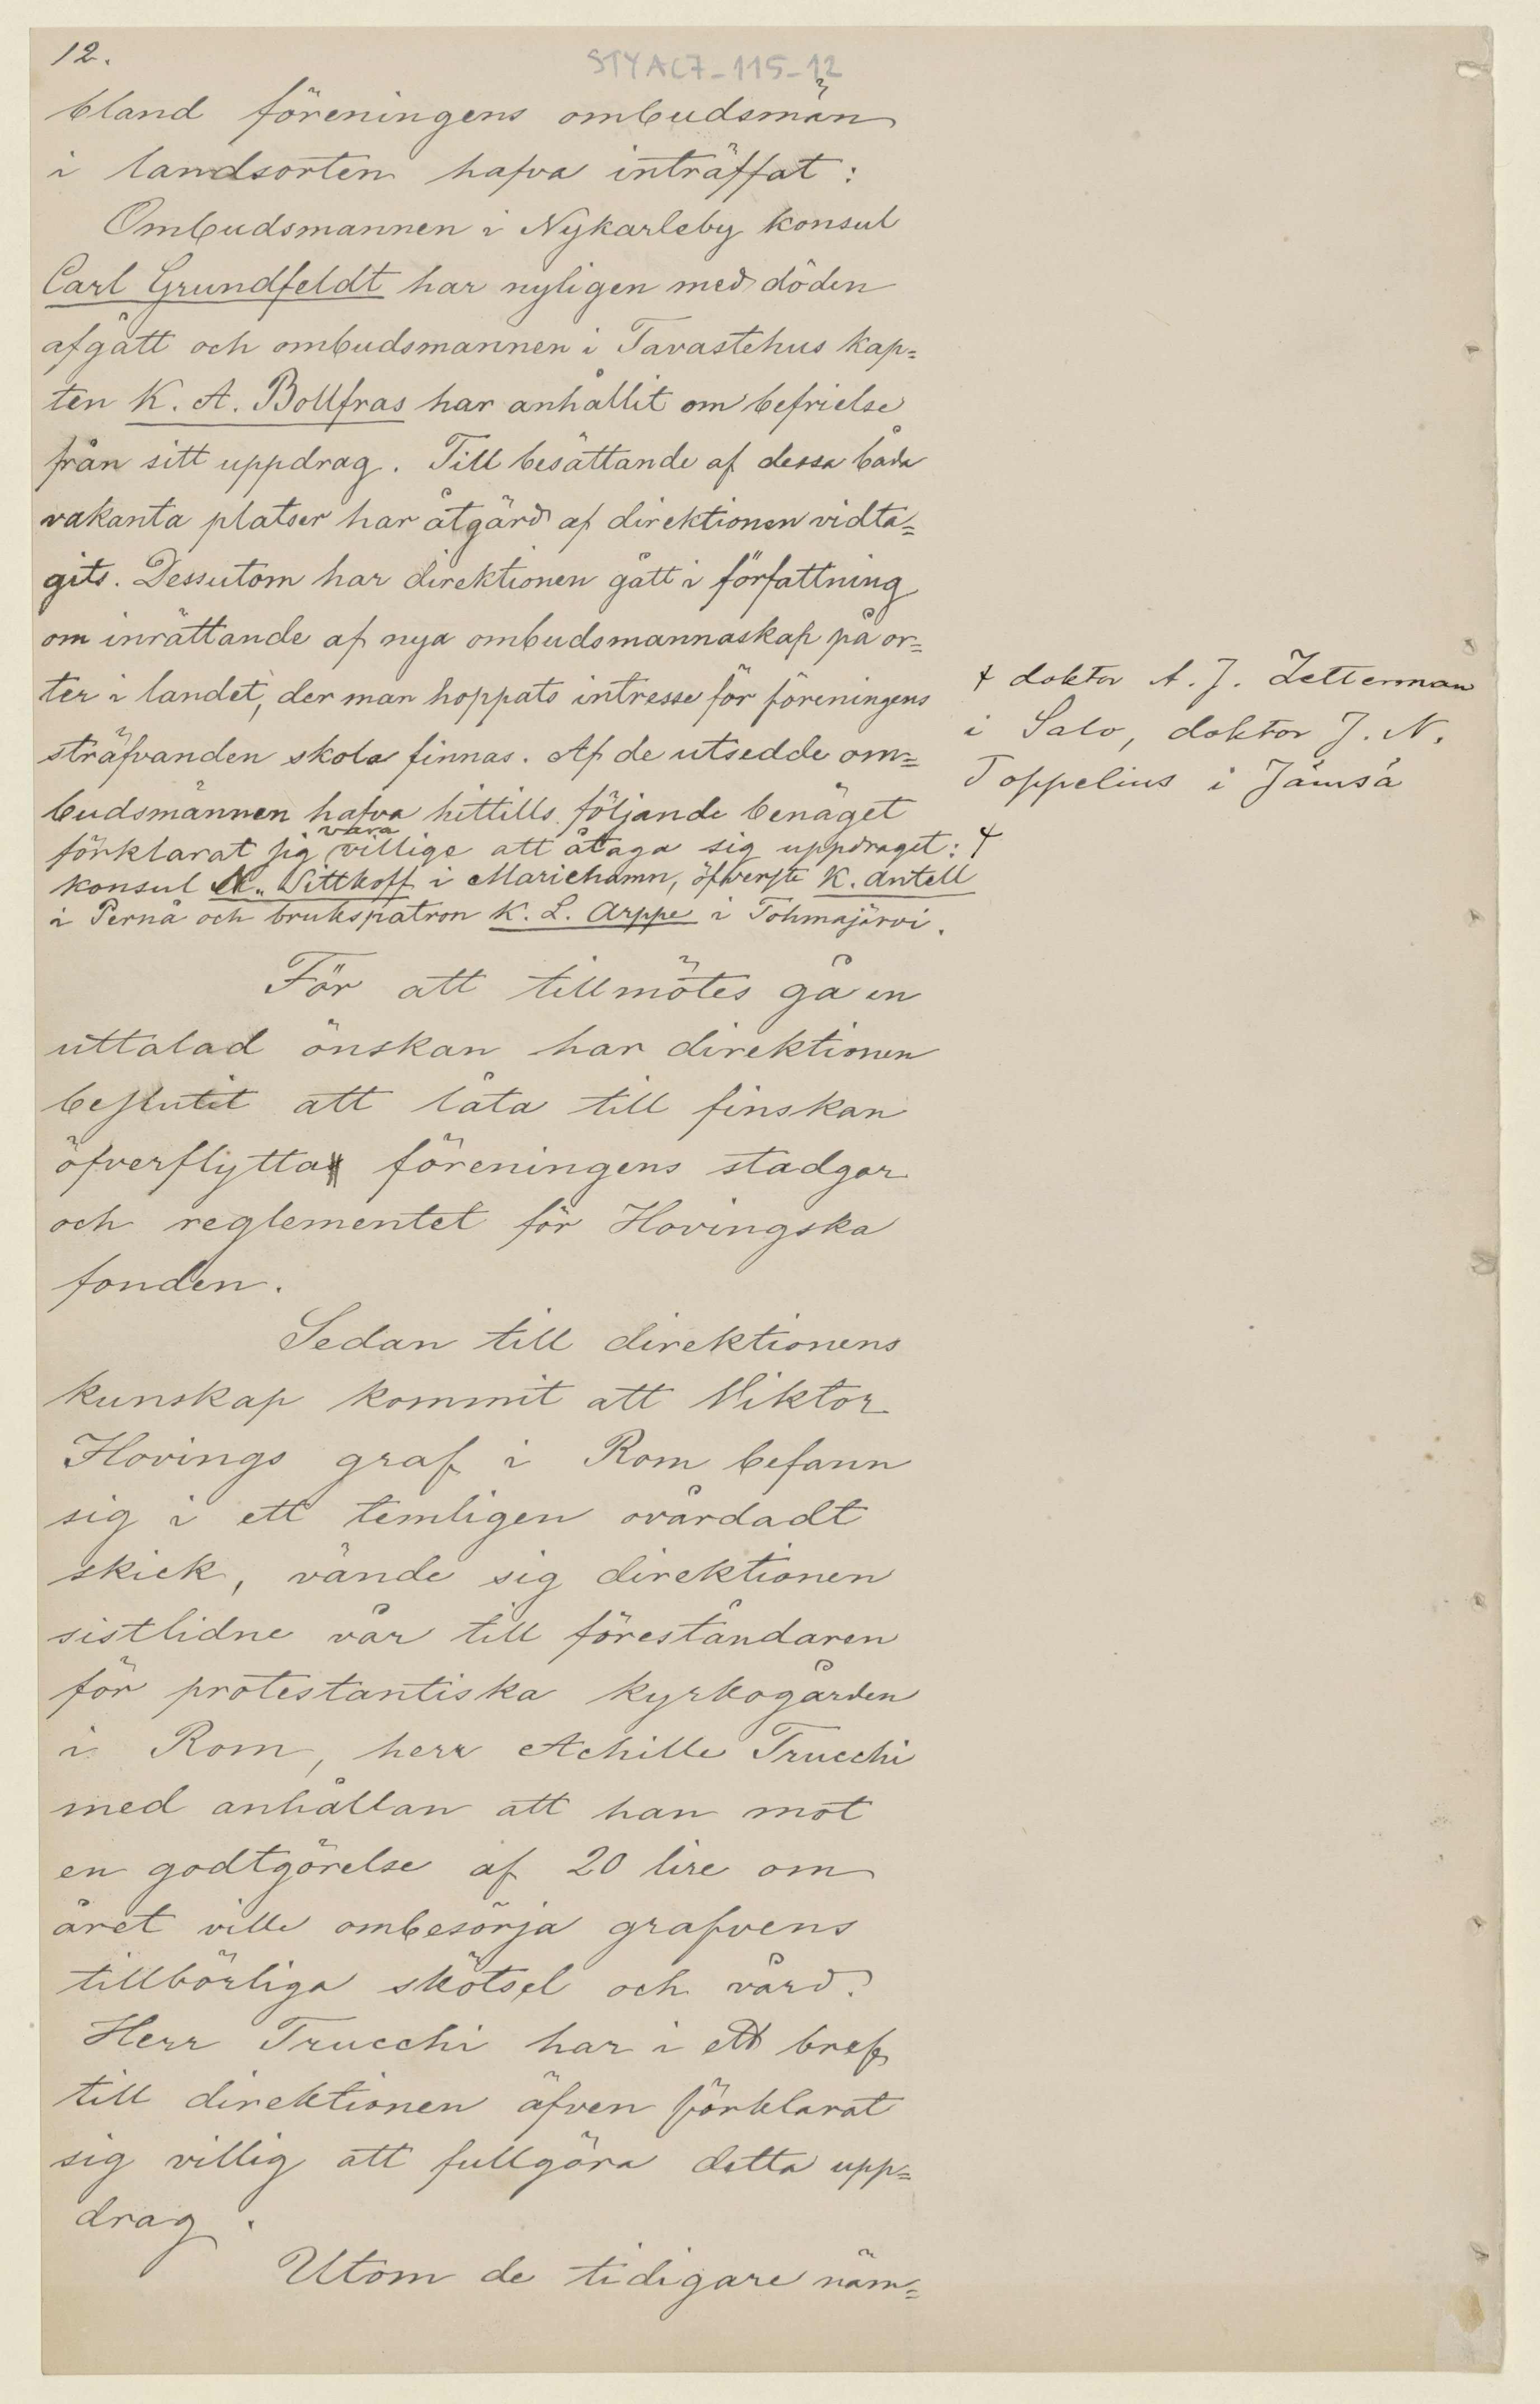 12.
STYAC7-115-12
bland föreningens ombudsmän
i landsorten hafva inträffat:
Ombudsmannen i Nykarleby konsul
Carl Grundfeldt har nyligen med döden
afgått och ombudsmannen i Tavastehus kap=
ten K. A. Bollfras har anhållit om befrielse
från sitt uppdrag. Till besättande af dessa båda
vakanta platser har åtgärd af direktionen vidta=
gits. Dessutom har direktionen gått i författning
om inrättande af nya ombudsmannaskap på or=
ter i landet, der man hoppats intresse för föreningens
sträfvanden skola finnas. Af de utsedde om=
budsmännen hafva hittills följande benäget
vara
förklarat sig villige att åtaga sig uppdraget: +
konsul N. Sittkoff i Mariehamn, öfverste K. Antell
i Pernå och brukspatron K. L. Arppe i Tohmajärvi.
+ doktor A. J. Zetterman
i Salo, doktor J. N.
Toppelius i Jämsä
För att tillmötes gå en
uttalad önskan har direktionen
beslutit att låta till finskan
öfverflytta föreningens stadgar
och reglementet för Hovingska
fonden.
Sedan till direktionens
kunskap kommit att Viktor
Hovings graf i Rom befann
sig i ett temligen ovårdadt
skick, vände sig direktionen
sistlidne vår till föreståndaren
för protestantiska kyrkogården
i Rom, herr Achille Trucchi
med anhållan att han mot
en godtgörelse af 20 lire om
året ville ombesörja grafvens
tillbörliga skötsel och vård.
Herr Trucchi har i ett bref
till direktionen äfven förklarat
sig villig att fullgöra detta upp=
drag.
Utom de tidigare näm=